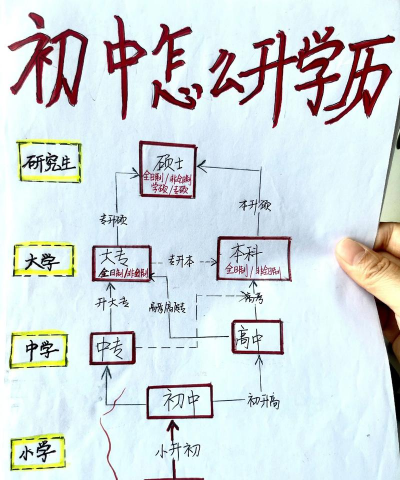 初中怎么升学历
研究生
硕士
全日制/非全日制
学硕/专硕
专升硕
本升硕
大学
大专
全日制/非全日制
专升本
本科
全日制/非全日制
升大专
高考
中学
中专
高中
初中
初升高
小学
小升初